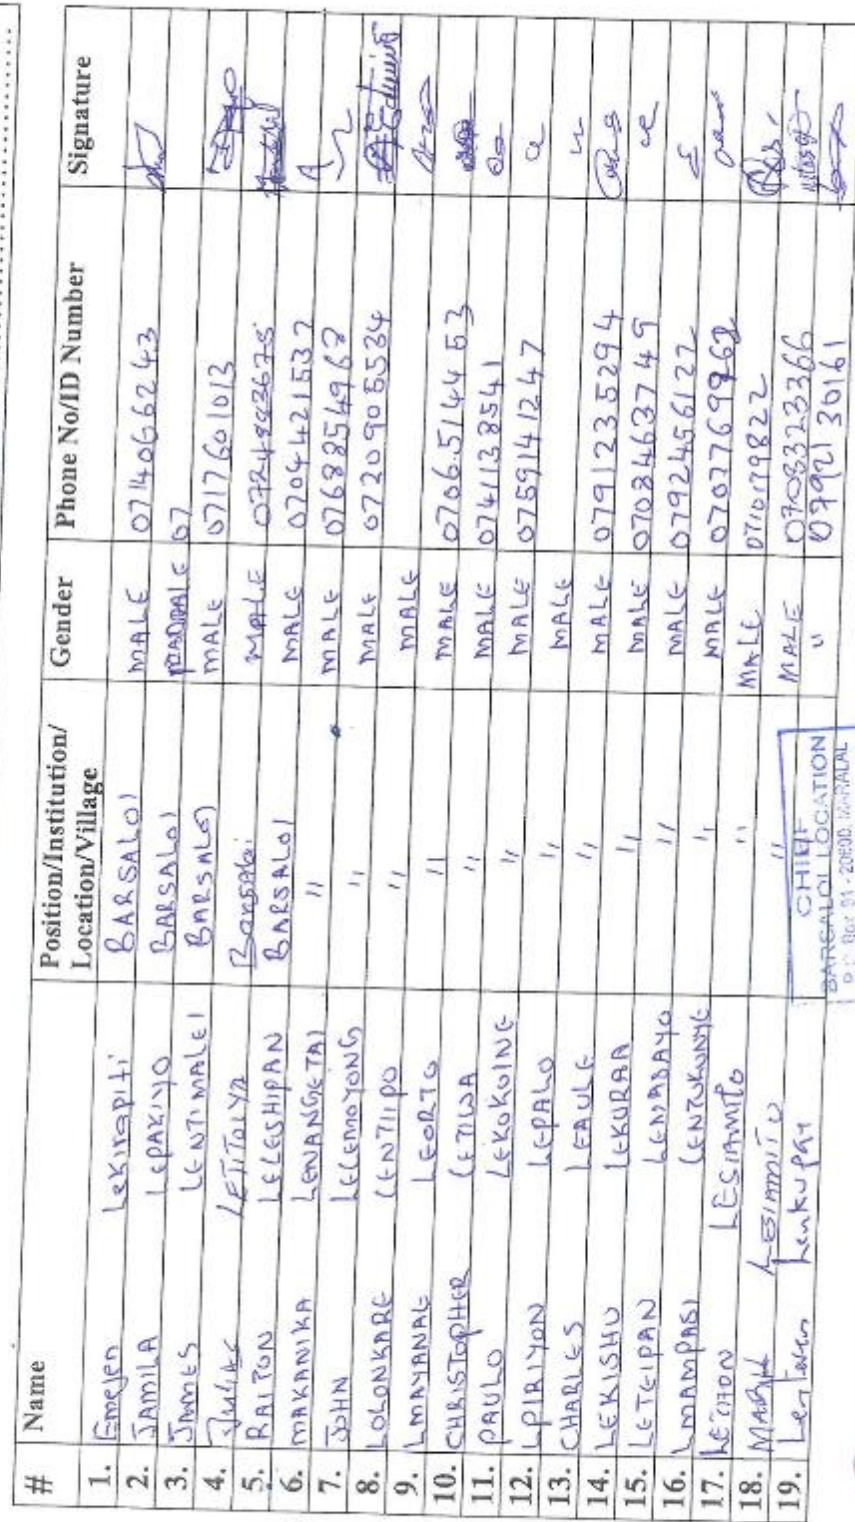 # Name Position/Institution/Location/Village Gender Phone No/ID Number Signature
1. Emejen Lekiropiti BARSALOI MALE 0714066243
2. JAMILA LEPAKIYO BARSALOI MALE 07
3. JAMES LENTIMALEI BARSALOI MALE 0717601013
4. Julias LETITOIYA Barsaloi MALE
5. RAITON LELESHIPAN BARSALOI MALE 0704421537
6. MAKANIKA LENANGETAI " MALE 0768854962
7. JOHN LELEMOYONG " MALE 0720905534
8. LOLONKARE LENTIIPO " MALE
9. LMAYANAE LEORTO " MALE 0706514453
10. CHRISTOPHER LETIWA " MALE 0741138541
11. PAULO LEKUKUINE " MALE 0759141247
12. LPIRIYON LEPALO " MALE
13. CHARLES LEAULE " MALE 0791235294
14. LEKISHU LEKURAA " MALE 0708463749
15. LETEIPAN LEMADAYO " MALE 0792456127
16. LMAMPASI LENTUKUNYE " MALE
17. LESIAMITO " MALE 0710179822
18. LESIAMITO " MALE 0708323366
19. Lenkupae " 0792130161
CHIEF
BARSALOI LOCATION
P.O. Box 91 - 20600, MARALAL